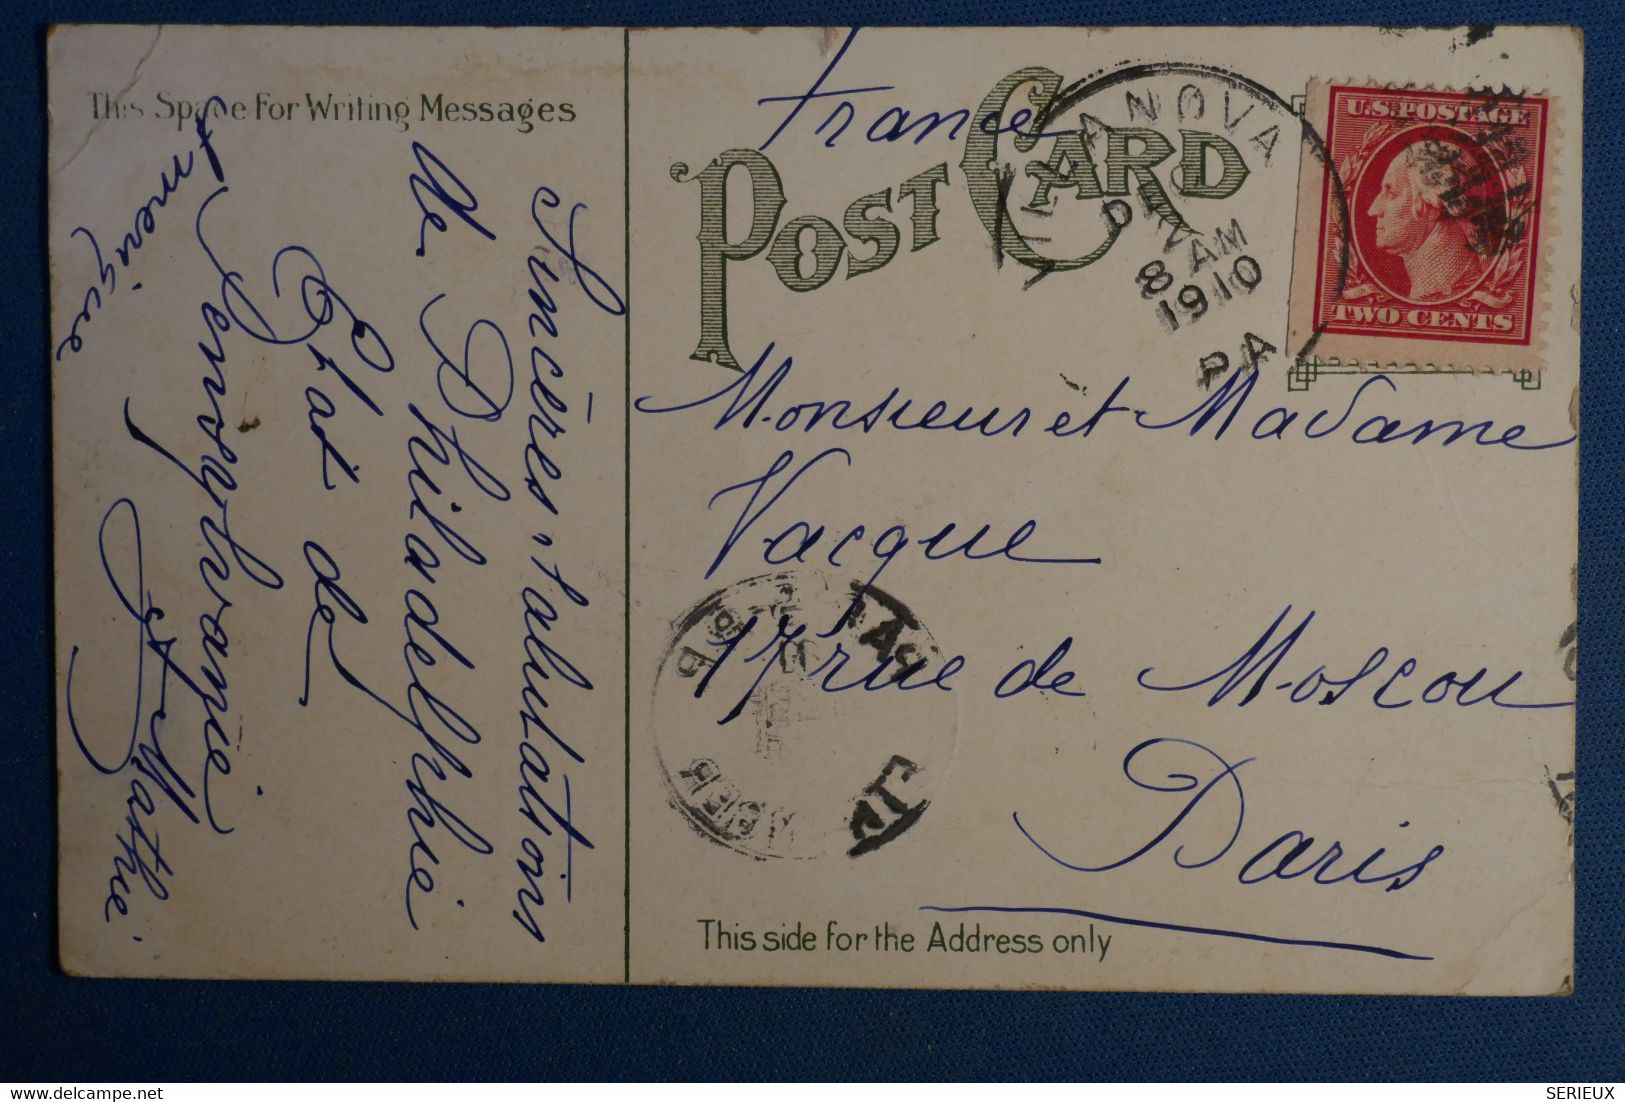 This Space For Writing Messages
Sincères salutations
de Philadelphie
Etat de
Pensylvanie
Amerique
Mathie
France
POST CARD
VILLANOVA
DEC
2
8 AM
1910
PA
U.S. POSTAGE
TWO CENTS
Monsieur et Madame
Vacque
17 rue de Moscou
Paris
This side for the Address only
SERIEUX